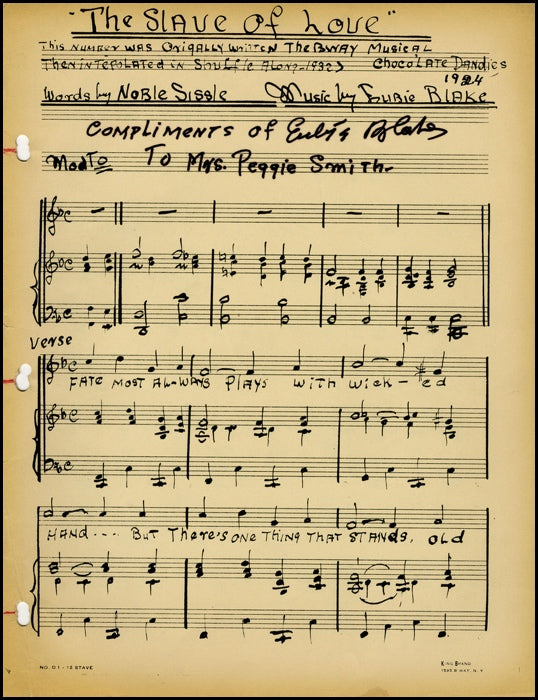 "The Slave Of Love"
This Number was Origally written The Bway Musical
Then intepolated in Shuffle Along - 1932 Chocolate Dandies
1924
Words by Noble Sissle Music by Eubie Blake
Compliments of Eubie Blake
Mod To To Mrs. Peggie Smith -
Verse
Fate most Al-ways Plays with wick - ed
Hand - - - But There's one Thing That Stands, old
NO. 01 - 12 STAVE
King Brand
1595 B'WAY, N.Y.